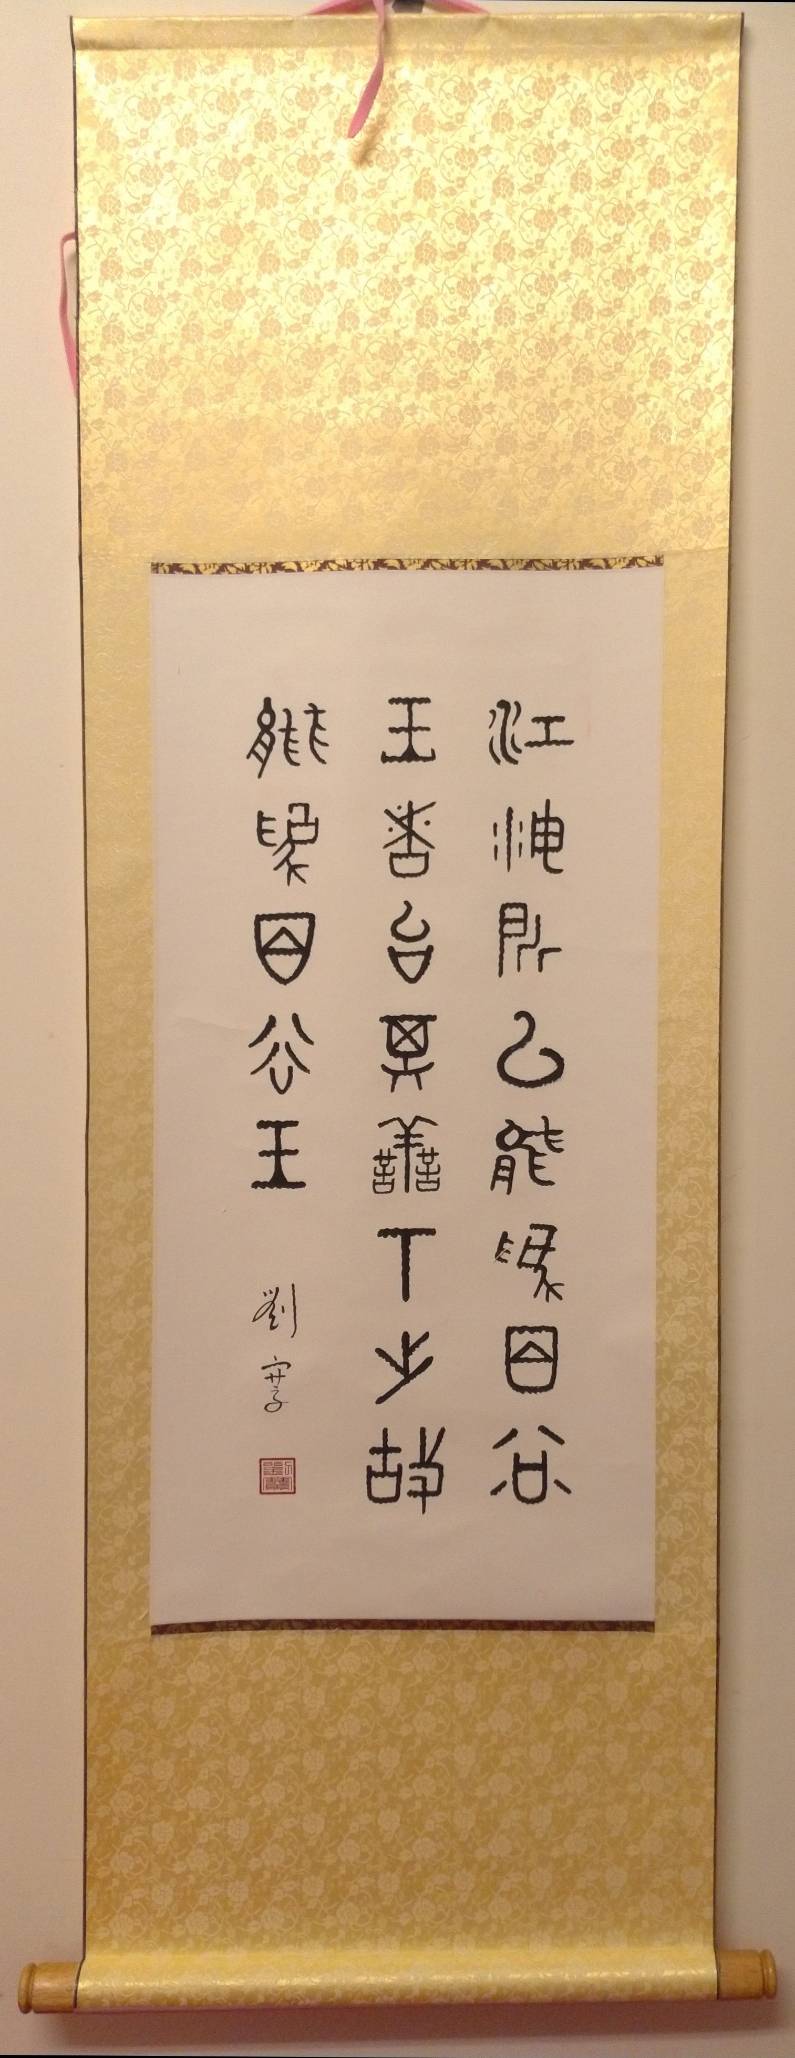 江海所以能為百谷
王者以其善下之故
能為百谷王
劉